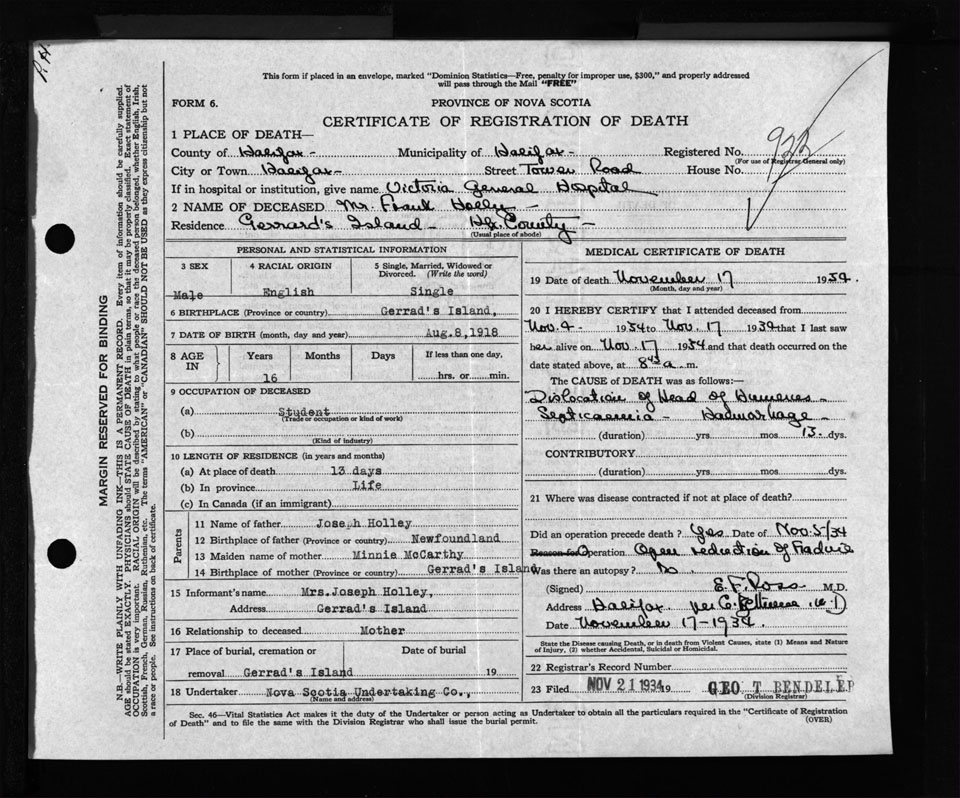 P.H.
This form if placed in an envelope, marked "Dominion Statistics—Free, penalty for improper use, $300," and properly addressed
will pass through the Mail "FREE"
FORM 6.
PROVINCE OF NOVA SCOTIA
CERTIFICATE OF REGISTRATION OF DEATH
922
1 PLACE OF DEATH—
County of Halifax - Municipality of Halifax - Registered No.
(For use of Registrar General only)
City or Town Halifax - Street Tower Road House No.
If in hospital or institution, give name Victoria General Hospital
2 NAME OF DECEASED Mr. Frank Holly -
Residence Gerrard's Island - Hfx. County -
(Usual place of abode)
PERSONAL AND STATISTICAL INFORMATION
3 SEX 4 RACIAL ORIGIN 5 Single, Married, Widowed or
Divorced. (Write the word)
Male English Single
6 BIRTHPLACE (Province or country) Gerrad's Island,
7 DATE OF BIRTH (month, day and year) Aug.8,1918
8 AGE IN Years Months Days If less than one day,
16 hrs. or min.
9 OCCUPATION OF DECEASED
(a) Student
(Trade or occupation or kind of work)
(b)
(Kind of industry)
10 LENGTH OF RESIDENCE (in years and months)
(a) At place of death 13 days
(b) In province Life
(c) In Canada (if an immigrant)
Parents
11 Name of father Joseph Holley
12 Birthplace of father (Province or country) Newfoundland
13 Maiden name of mother Minnie McCarthy
14 Birthplace of mother (Province or country) Gerrad's Island
15 Informant's name Mrs.Joseph Holley,
Address Gerrad's Island
16 Relationship to deceased Mother
17 Place of burial, cremation or Date of burial
removal Gerrad's Island 19
18 Undertaker Nova Scotia Undertaking Co.,
(Name and address)
MEDICAL CERTIFICATE OF DEATH
19 Date of death November 17 1934.
(Month, day and year)
20 I HEREBY CERTIFY that I attended deceased from
Nov. 4 - 1934 to Nov. 17 1934 that I last saw
her alive on Nov. 17 1934 and that death occurred on the
date stated above, at 8 45 a. m.
The CAUSE of DEATH was as follows:—
Dislocation of Head of Humerus -
Septicaemia - Haemorrhage -
(duration) yrs. mos. 13 dys.
CONTRIBUTORY
(duration) yrs. mos. dys.
21 Where was disease contracted if not at place of death?
Did an operation precede death? Yes Date of Nov. 5/34
Reason for Operation Open reduction of
Was there an autopsy? No.
(Signed) E. F. Ross M.D.
Address Halifax per C.
Date November 17 - 1934.
State the Disease causing Death, or in death from Violent Causes, state (1) Means and Nature
of Injury, (2) whether Accidental, Suicidal or Homicidal.
22 Registrar's Record Number
23 Filed NOV 21 1934 19 GEO T BENDELEP
(Division Registrar)
Sec. 46—Vital Statistics Act makes it the duty of the Undertaker or person acting as Undertaker to obtain all the particulars required in the "Certificate of Registration
of Death" and to file the same with the Division Registrar who shall issue the burial permit. (OVER)
MARGIN RESERVED FOR BINDING
N.B.—WRITE PLAINLY WITH UNFADING INK—THIS IS A PERMANENT RECORD. Every item of information should be carefully supplied.
AGE should be stated EXACTLY. PHYSICIANS should STATE CAUSE OF DEATH in plain terms, so that it may be properly classified. Exact statement of
OCCUPATION is very important. RACIAL ORIGIN will be described by stating to what people or race the deceased person belonged, whether English, Irish,
Scottish, French, German, Russian, Ruthenian, etc. The terms "AMERICAN" or "CANADIAN" SHOULD NOT BE USED as they express citizenship but not
a race or people. See instructions on back of certificate.